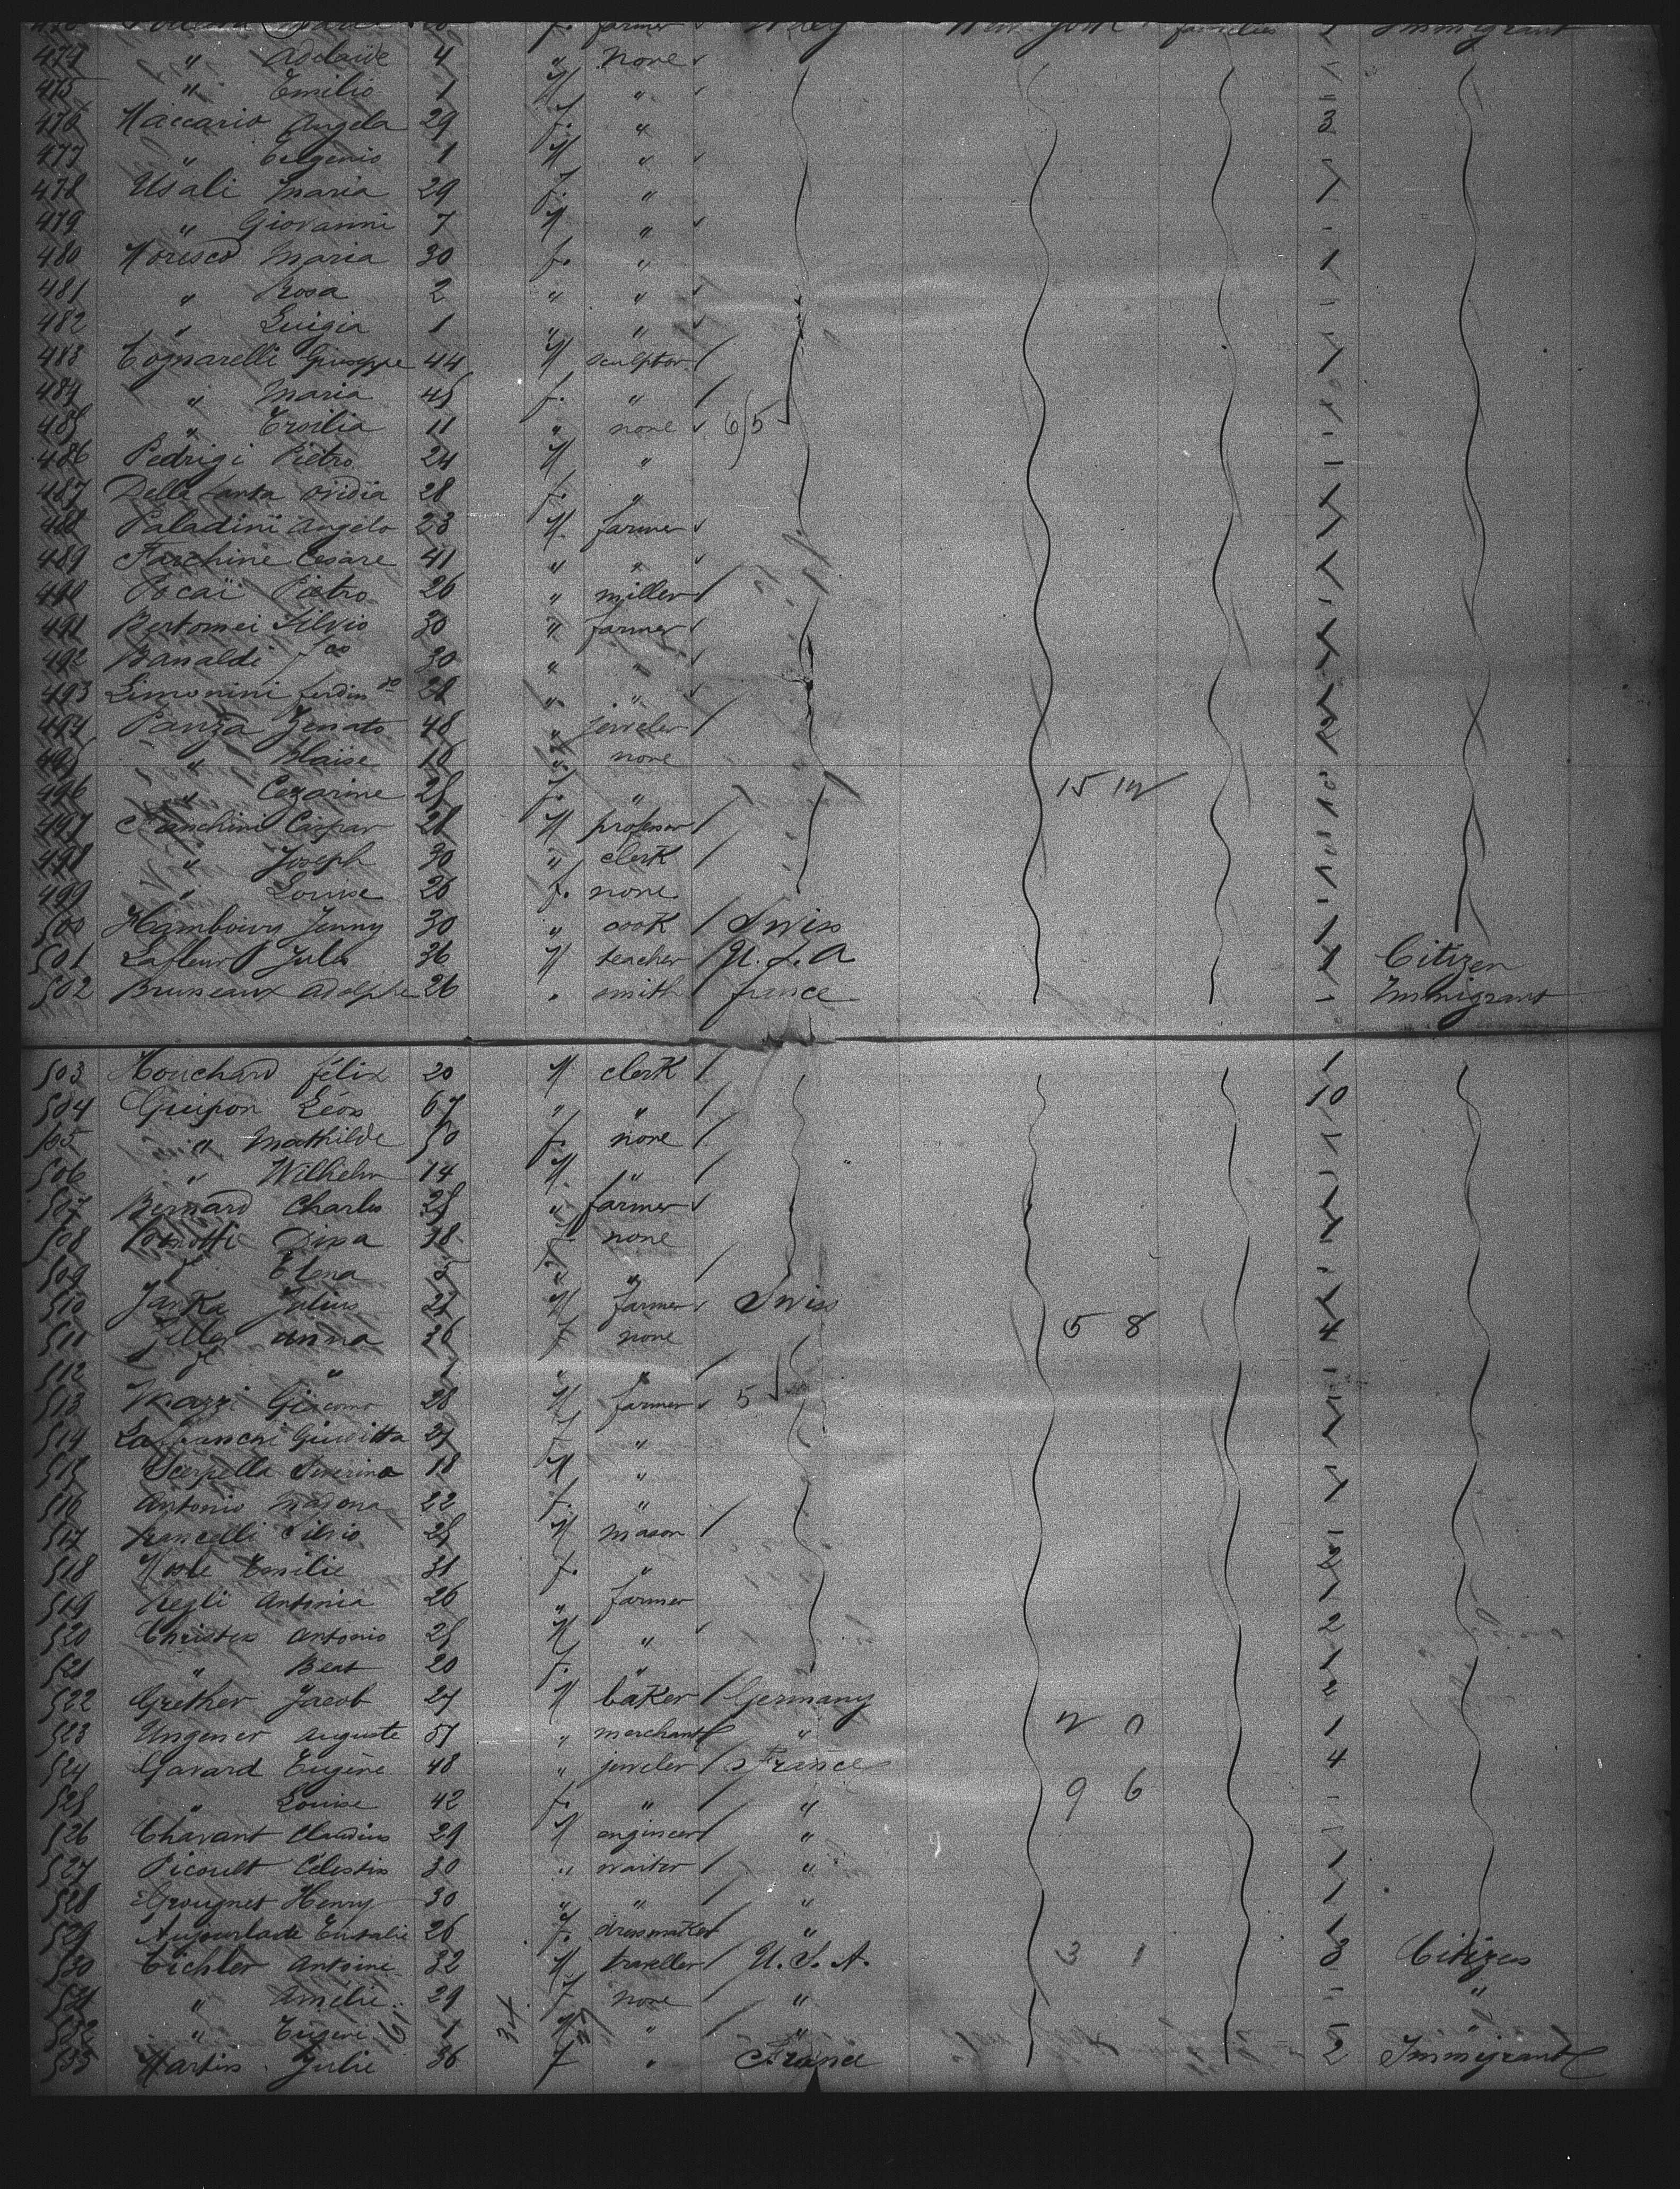 farmer Italy New York families 1 Immigrant
474 " Adelaide 4 " none
475 " Emilio 1 M "
476 Maccario Angela 29 f. " 3
477 " Eugenio 1 M "
478 Usali Maria 29 f. " 1
479 " Giovanni 7 M "
480 Moresco Maria 30 f. " 1
481 " Rosa 2 " "
482 " Luigia 1 " "
483 Cognarelli Giuseppe 44 M sculptor 1
484 " Maria 45 f. "
485 " Ersilia 11 " none 6/5
486 Pedrigi Pietro 24 M "
487 Della Santa Ovidia 28 f. " 1
488 Paladini Angelo 23 M. farmer 1
489 Farchine Cesare 41 " " 1
490 Pocai Pietro 26 " miller
491 Bertomei Silvio 30 " farmer 1
492 Banaldi fco 30 " "
493 Limonini ferdindo 28 " "
494 Panza Zenato 48 " jeweler 2
495 " Blaise 10 " none
496 " Cezarine 28 f. " 15 12
497 Franchini Caspar 28 M professor
498 " Joseph 30 " clerk
499 " Louise 26 f. none
500 Hamboury Jenny 30 " cook Swiss 1
501 Lafleur Jules 36 M teacher U.S.A 1 Citizen
502 Bruneaux Adolphe 26 " smith france Immigrant
503 Houchard félix 20 M clerk 1
504 Guipon Léon 67 " " 10
505 " Mathilde 50 f. none
506 " Wilhelm 14 M. "
507 Bernard Charles 28 " farmer 1
508 Dina 38 f. none 1
509 " Elena " "
510 Janka Julius 21 M farmer Swiss 1
511 Zeller Anna 36 f none 5 8 4
512 " 1 " "
513 Giacomo 28 M farmer 5
514 Giuditta 27 f "
515 Scerpella Severino 18 M " 1
516 Antonio Madona 22 f. " 1
517 Silvio 28 M mason
518 Emilie 31 f. " 2
519 Regli Antonia 26 " farmer 1
520 Christen Antonio 28 M " 2
521 " Beat 20 f. " 1
522 Grether Jacob 27 M baker Germany 2
523 Ungener Auguste 51 " merchant " 2 0 1
524 Gavard Eugène 48 " jeweler France 4
525 " Louise 42 f. " " 9 6
526 Chavant Claudius 29 M engineer " 1
527 Picoult Célestin 30 " waiter " 1
528 Grougnet Henry 30 " " " 1
529 Eulalie 26 f. dressmaker " 1
530 Eichler Antoine 32 M traveller U.S.A. 3 1 3 Citizen
531 " Amélie 29 f none " "
532 " Eugéni 1 M " " "
533 Martin Julie 36 f " France 2 Immigrant